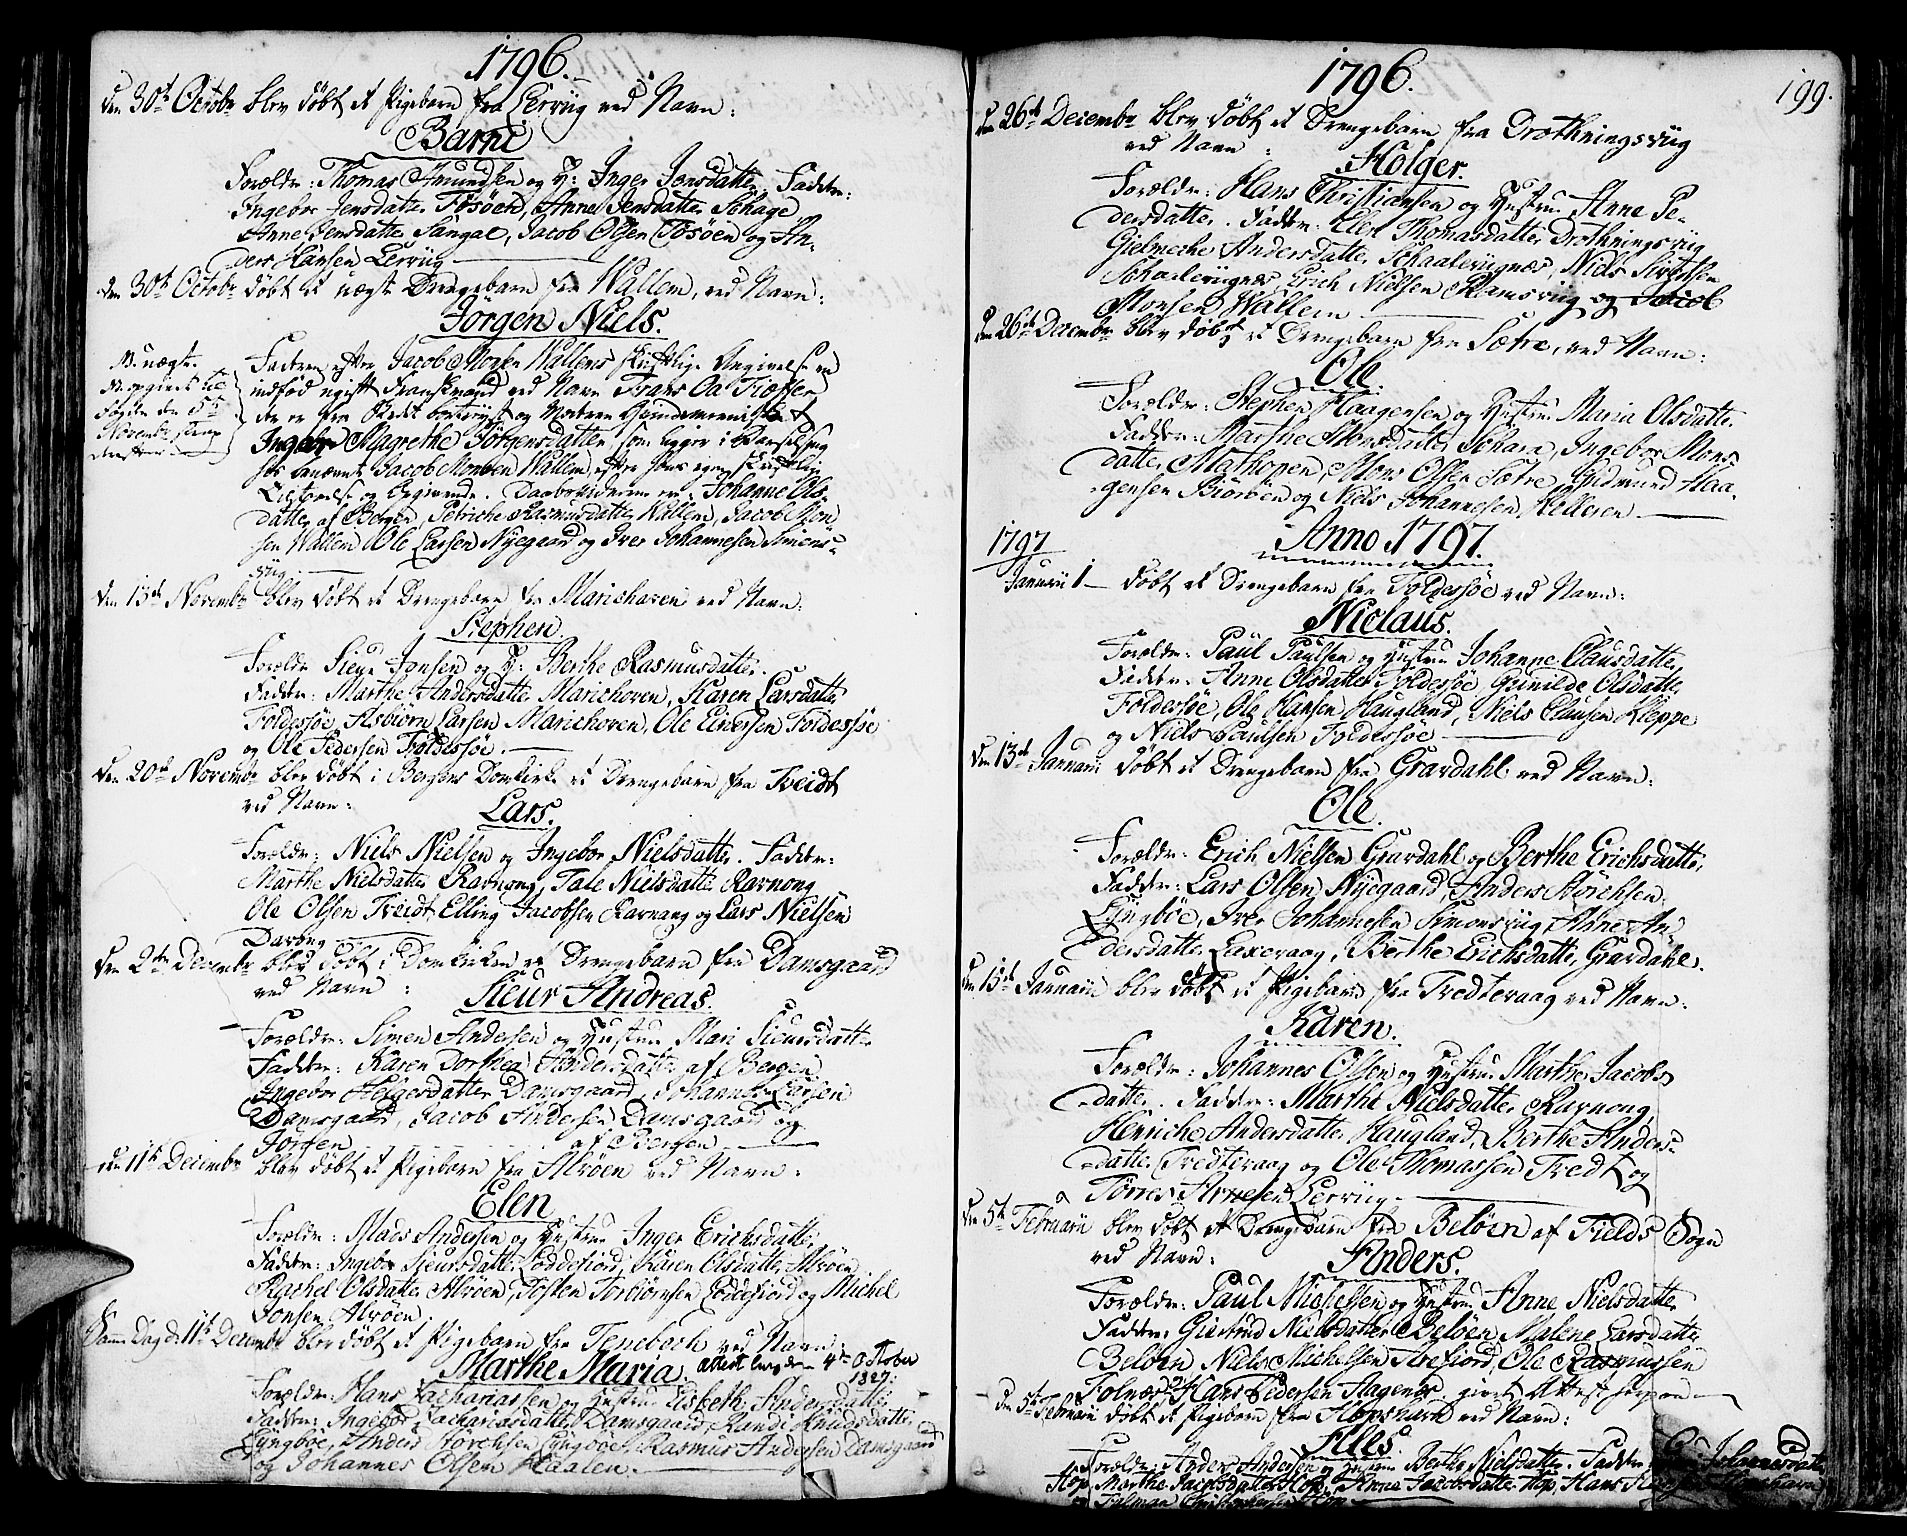 1796.
den 30t Octobr blev døbt et Pigebarn fra Lervüg ved Navn:
Barni
Forældr: Thomas Amundsen og H: Inger Jensdatter. Faddr:
Ingebor Jensdatter Tøsöen, Anne Jensdatter Schage
Anne Jensdatter Sangat, Jacob Olsen Tösöen og An-
ders Hansen Lervüg
den 30t Octobr døbt et uægte Drengebarn fra Wallem, ved Navn:
Jörgen Niels.
N: uægte
Fogden den 5te
Novembr
Faderen efter Jacob Monsen Wallems skriftlige Angivelse en
indfød ugift Franskmand ved Navn Frans
Ingebor Magrethe Jörgensdatter som ligger i Barselseng
hos benævnte Jacob Monsen Wallem, efter hans egen skriftlige
og Opgivende. Daabsvidnerne er: Johanne Ols-
datter af Bergen, Petriche Rasmusdatter Wallem, Jacob Mon
sen Wallem Ole Larsen Nyegaard og Iver Johannesen Simons-
vüg
den 13de Novembr blev døbt et Drengebarn fra Marichaven ved Navn:
Stephen
Forældr Sieur Jonsen og H: Berthe Rasmusdatter.
Faddr: Marthe Andersdatter Marichoven, Karen Larsdatter
Foldessøe, Asbiörn Larsen Marichoven, Ole Einersen Foldessøe
og Ole Pedersen Foldessøe.
den 20de Novembr blev døbt i Bergens Domkirke et Drengebarn fra Tveidt
ved Navn:
Lars.
Forældr: Niels Nielsen og Ingebor Nielsdatter. Faddr:
Marthe Nielsdatter Ravnong, Tale Nielsdatter Ravnong
Ole Olsen Tveidt Elling Jacobsen Ravnang og Lars Nielsen
Davong
den 2den Decembr blev døbt i Domkirken et Drengebarn fra Damsgaard
ved Navn:
Sieur Andreas.
Forældr: Simen Andersen og Hustru Mari Sieursdatter
Faddr: Karen Dorthea Andersdatter af Bergen
Ingebor Holgersdatter Damsgaard, Johannes Larsen
Damsgaard, Jacob Andersen Damsgaard og
Jörgen af Bergen
den 11t Decembr blev døbt et Pigebarn fra Alröen ved Navn:
Elen
Forældr: Mads Andersen og Hustru Inger Erichsdatter
Faddr: Ingebor Sieursdatter Loddefiord, Karen Olsdatter, Alröen
Rachel Olsdatter Alröen, Tosten Torbiörnsen Loddefiord og Michel
Jonsen Alröen
Samme Dag d. 11t Decembr blev døbt et Pigebarn fra Tenebech ved Navn:
Marthe Maria. Attest 4de October
1827.
Forældr: Hans Zachariassen og Hustru Lisbeth Andersdatter
Faddr: Ingebor Zachariasdatter Damsgaard, Randi Knudsdatter
Lyngbøe, Anders Störchsen Lyngbøe, Rasmus Andersen Damsgaard
og Johannes Olsen Haalen.
1796. 199.
den 26de Decembr blev døbt et Drengebarn fra Drothningsvüg
ved Navn:
Holger.
Forældr: Hans Christiansen og Hustru Anne Pe-
dersdatter. Faddr: Elen Thomasdatter Drothningsvüg
Gielmeche Andersdatter Schaalevügnæs, Niels Sivertsen
Schaalevügnæs, Erich Nielsen Ramsvüg og Jacob
Monsen Wallem
den 26de Decembr blev døbt et Drengebarn fra Sætre, ved Navn:
Ole.
Forældr: Stephen Haagensen og Hustru Maria Olsdatter.
Faddr: Marthe Monsdatter Schara, Ingebor Mons
datter, Mathopen, Mons Olsen Sætre, Gudmund Haa-
gensen Biöröen og Niels Johannesen Helleren
Anno 1797.
1797
Januari 1 døbt et Drengebarn fra Foldessøe ved Navn:
Niclaus.
Forældr: Paul Paulsen og Hustru Johanne Clausdatter
Faddr: Anne Olsdatter Foldessøe Gunilde Olsdatter
Foldessøe, Ole Hansen Haugland, Niels Clausen Kleppe
og Niels Paulsen Foldessøe
den 13de Januari døbt et Drengebarn fra Gravdahl ved Navn:
Ole.
Forældr: Erich Nielsen Gravdahl og Berthe Erichsdatter,
Faddr: Lars Olsen Nyegaard, Anders Störchsen
Lyngbøe, Iver Johannesen Simonsvüg, Anne An-
dersdatter Laxevaag, Berthe Erichsdatter Gravdahl.
den 15de Januari blev døbt et Pigebarn fra Tredteraag ved Navn:
Karen.
Forældr: Johannes Olsen og Hustru Marthe Jacobs
datter. Faddr: Marthe Nielsdatter Ravnong,
Henriche Andersdatter Haugland, Berthe Anders-
datter Tredteraag og Ole Thomassen Tredt og
Törres Arnesen Lervüg
den 5te Februari blev døbt et Drengebarn fra Belöen af Fields Sogn
ved Navn:
Anders.
Forældr: Paul Michelsen og Hustru Anne Nielsdatter
Faddr: Giertrud Nielsdatter Belöen, Malene Larsdatter
Belöen Niels Michelsen Arefiord, Ole Rasmussen
Folnæs Hans Pedersen Hagenæs. givet Attest
den 5te Februari døbt et Pigebarn fra Hopshavn ved Navn:
Alles.
Forældr: Anders Andersen og Hustru Berthe Nielsdatter. Faddr: Johannesdatter
Hop, Marthe Jacobsdatter Hop, Anne Jacobsdatter Hop, Hans